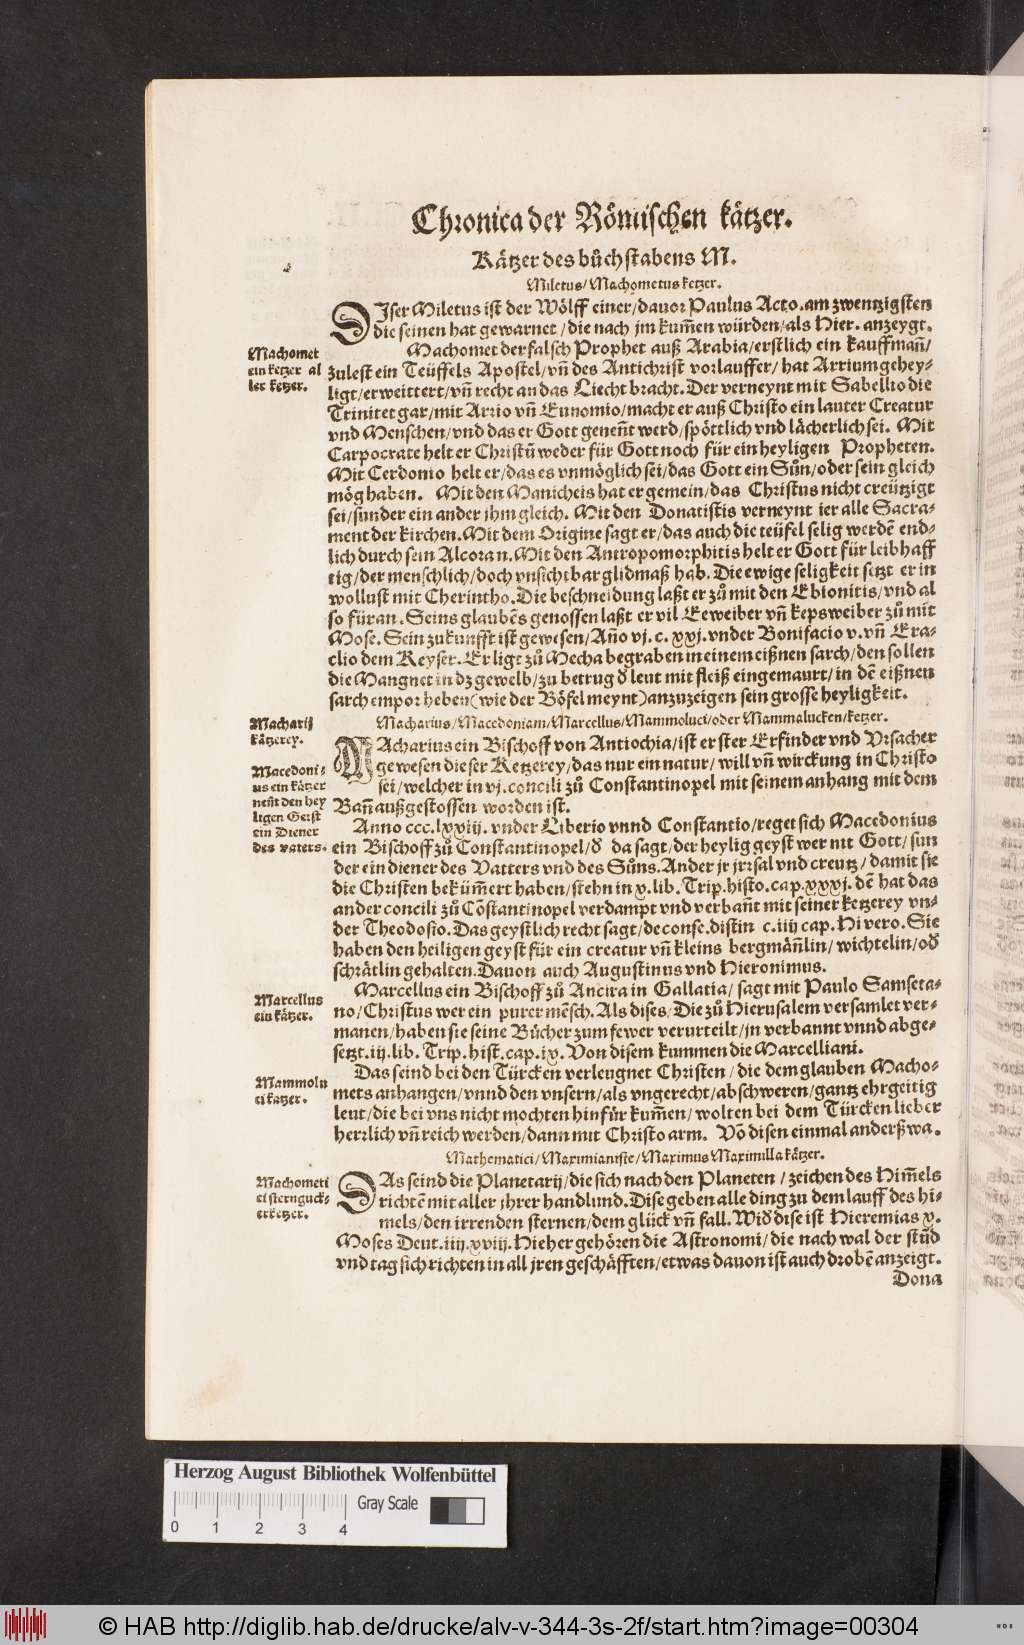 Chronica der Römischen kätzer.
Kätzer des bůchstabens M.
Miletus/ Machometus ketzer.
DIser Miletus ist der Wölff einer/ dauor Paulus Acto. am zwentzigsten
die seinen hat gewarnet / die nach jm kum̃en würden/ als Hier. anzeygt.
Machomet
ein ketzer al
ler ketzer.
Machomet der falsch Prophet auß Arabia/ erstlich ein kauffman̄/
zulest ein Teüffels Apostel/ vn̄ des Antichrist vorlauffer/ hat Arrium gehey-
ligt/ erweittert/ vn̄ recht an das Liecht bracht. Der verneynt mit Sabellio die
Trinitet gar/ mit Arrio vn̄ Eunomio/ macht er auß Christo ein lauter Creatur
vnd Menschen/ vnd das er Gott genen̄t werd/ spöttlich vnd lächerlich sei. Mit
Carpocrate helt er Christū weder für Gott noch für ein heyligen Propheten.
Mit Cerdonio helt er/ das es vnmöglich sei/ das Gott ein Sůn/ oder sein gleich
mög haben. Mit den Manicheis hat er gemein/ das Christus nicht creützigt
sei/ sunder ein ander jhm gleich. Mit den Donatistis verneynt ier alle Sacra-
ment der kirchen. Mit dem Origine sagt er/ das auch die teüfel selig werdē end-
lich durch sein Alcoran. Mit den Antropomorphitis helt er Gott für leibhaff
tig/ der menschlich/ doch vnsichtbar glidmaß hab. Die ewige seligkeit setzt er in
wollust mit Cherintho. Die beschneidung laßt er zů mit den Ebionitis/ vnd al
so für an. Seins glaubēs genossen laßt er vil Eeweiber vn̄ kepsweiber zů mit
Mose. Sein zukunfft ist gewesen/ Año vj. c. xxj. vnder Bonifacio v. vn̄ Era-
clio dem Keyser. Er ligt zů Mecha begraben in einem eißnen sarch/ den sollen
die Mangnet in dz gewelb/ zu betrug d̄ leut mit fleiß eingemaurt/ in dē eißnen
sarch empor heben (wie der Böfel meynt) anzuzeigen sein grosse heyligkeit.
Macharius/ Macedoniani/ Marcellus/ Mammoluci/ oder Mammalucken/ ketzer.
Macharij
kätzerey.
MAcharius ein Bischoff von Antiochia/ ist erster Erfinder vnd Vrsacher
gewesen dieser Ketzerey/ das nur ein natur/ will vn̄ wirckung in Christo
sei/ welcher in vj. concili zů Constantinopel mit seinem anhang mit dem
Ban̄ außgestossen worden ist.
Macedoni-
us ein kätzer
nen̄t den hey
ligen Geist
ein Diener
des vaters.
Anno ccc. lxxiij. vnder Liberio vnnd Constantio/ reget sich Macedonius
ein Bischoff zů Constantinopel/ d̄ da sagt/ der heylig geyst wer nit Gott/ sun
der ein diener des Vatters vnd des Sůns. Ander jr jrrsal vnd creutz/ damit sie
die Christen bekūm̃ert haben/ stehn in v. lib. Trip. histo. cap. xxxj. dē hat das
ander concili zů Cōstantinopel verdampt vnd verban̄t mit seiner ketzerey vn-
der Theodosio. Das geystlich recht sagt/ de conse. distin c. iiij cap. Hi vero. Sie
haben den heiligen geyst für ein creatur vn̄ kleins bergmän̄lin/ wichtelin/ od̄
schrätlin gehalten. Dauon auch Augustinus vnd Hieronimus.
Marcellus
ein kätzer.
Marcellus ein Bischoff zů Ancira in Gallatia/ sagt mit Paulo Samseta-
no/ Christus wer ein purer mēsch. Als dises/ Die zů Hierusalem versamlet ver-
manen/ haben sie seine Bůcher zum fewer verurteilt/ jn verbannt vnnd abge-
setzt. iij. lib. Trip. hist. cap. ix. Von disem kummen die Marcelliani.
Mammolu
ci katzer.
Das seind bei den Türcken verleugnet Christen / die dem glauben Macho-
mets anhangen/ vnnd den vnsern/ als vngerecht/ abschweren/ gantz ehrgeitig
leut/ die bei vns nicht mochten hinfür kum̃en/ wolten bei dem Türcken lieber
herzlich vn̄ reich werden/ dann mit Christo arm. Vō disen einmal anderßwa.
Mathematici/ Maximianiste/ Maximus Maximilla kätzer.
Machometi
ci sternguck-
erketzer.
DAs seind die Planetarij/ die sich nach den Planeten / zeichen des Him̃els
richtē mit aller jhrer handlund. Dise geben alle ding zu dem lauff des hi-
mels/ den irrenden sternen/ dem glück vn̄ fall. Wid̄ dise ist Hieremias x.
Moses Deut. iiij. xviij. Hieher gehören die Astronomi/ die nach wal der stūd
vnd tag sich richten in all jren geschäfften/ etwas dauon ist auch drobē anzeigt.
Dona
Herzog August Bibliothek Wolfenbüttel
Gray Scale
0 1 2 3 4
© HAB http://diglib.hab.de/drucke/alv-v-344-3s-2f/start.htm?image=00304